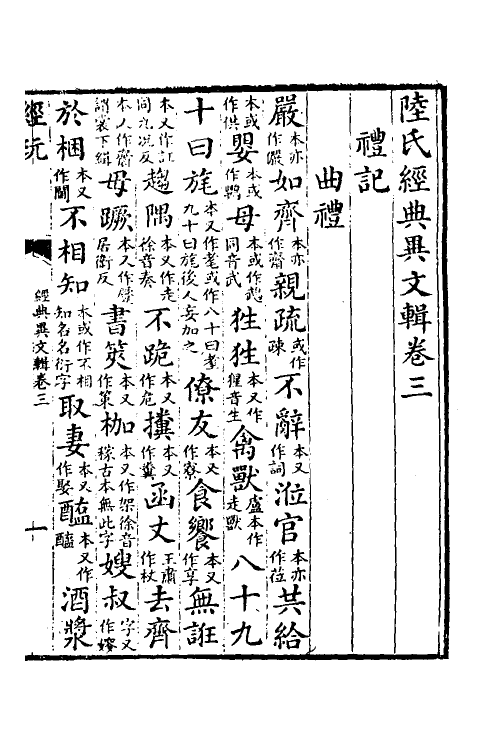 陸氏經典異文輯卷三
禮記
曲禮
嚴本亦作儼如齊本亦作齋親疏或作疎不辭本又作詞涖官本亦作莅共給
本或作供嬰本或作鸚母本或作䳇同音武狌狌本又作猩音生禽獸盧本作走獸八十九
十曰旄本又作耄或作八十曰耋九十曰旄後人妄加之僚友本又作寮食饗本又作享無誑
本又作迋同九况反趨隅本又作走徐音奏不跪本又作危攓本又作糞函丈王肅作杖去齊
本又作齋謂裳下緝毋蹶本又作蹷居衛反書筴本又作策枷本又作架徐音稼古本無此字嫂叔字又作㛐
於梱本又作閫不相知本或作不相知名名衍字取妻本又作娶醢本又作醯酒漿
經典異文輯卷三
十
經玩